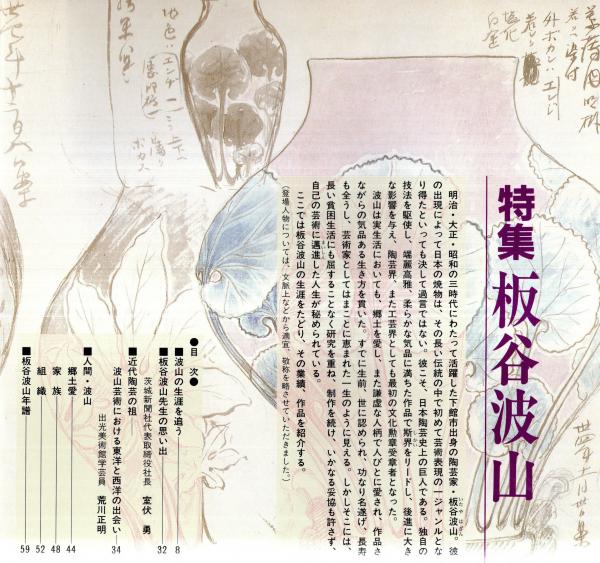 特集 板谷波山
明治・大正・昭和の三時代にわたって活躍した下館市出身の陶芸家・板谷波山。彼
いたやはざん
の出現によって日本の焼物は、その長い伝統の中で初めて芸術表現の一ジャンルとな
り得たといっても決して過言ではない。彼こそ、日本陶芸史上の巨人である。独自の
技法を駆使し、端麗高雅、柔らかな気品に満ちた作品で斯界をリードし、後進に大き
な影響を与え、陶芸界、また工芸界としても最初の文化勲章受章者となった。
波山は実生活においても、郷土を愛し、また謙虚な人柄で人びとに愛され、作品さ
ながらの気品ある生き方を貫いた。すでに生前、世に認められ、功なり名遂げ、長寿
も全うし、芸術家としてはまことに恵まれた一生のように見える。しかしそこには、
長い貧困生活にも屈することなく研究を重ね、制作を続け、いかなる妥協も許さず、
自己の芸術に邁進した人生が秘められている。
ここでは板谷波山の生涯をたどり、その業績、作品を紹介する。
(登場人物については、文脈上などから適宜、敬称を略させていただきました。)
●目 次●
■波山の生涯を追う 8
■板谷波山先生の思い出 32
茨城新聞社代表取締役社長 室伏 勇
■近代陶芸の祖
波山芸術における東洋と西洋の出会い 34
出光美術館学芸員 荒川正明
■人間・波山
郷土愛 44
家 族 48
組 織 52
■板谷波山年譜 59